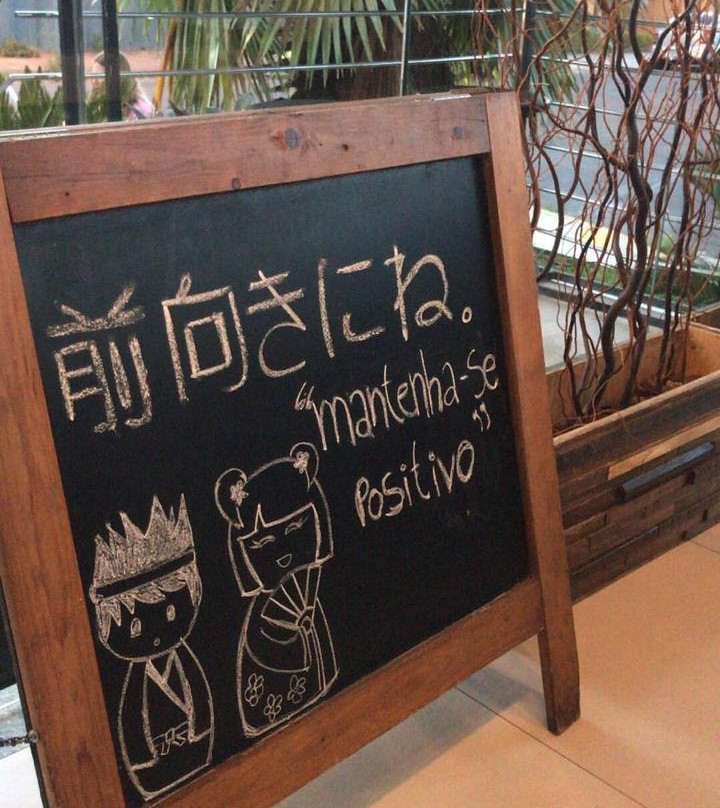 前向きにね。
"mantenha-se
positivo"